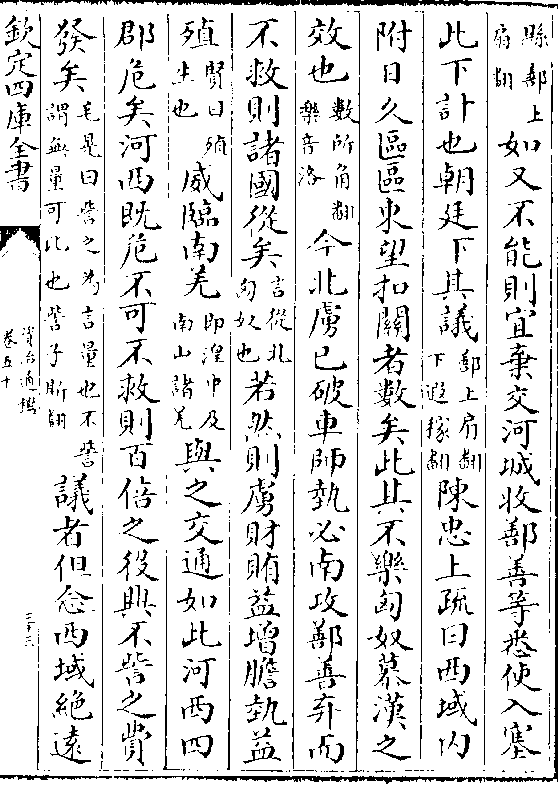 縣鄯上扇翻如又不能則宜棄交河城收鄯善等悉使入塞
此下計也朝廷下其議鄯上扇翻下遐稼翻陳忠上疏曰西域内
附日久區區東望扣關者數矣此其不樂匈奴慕漢之
效也數所角翻樂音洛今北虜已破車師埶必南攻鄯善弃而
不救則諸國從矣言從北匈奴也若然則虜財賄益增膽埶益
殖賢曰殖生也威臨南羌即湟中及南山諸羌與之交通如此河西四
郡危矣河西既危不可不救則百倍之役興不訾之費
發矣毛晃曰訾之為言量也不訾謂無量可比也訾子斯翻議者但念西域絶遠
欽定四庫全書
資治通鑑
卷五十
二十三